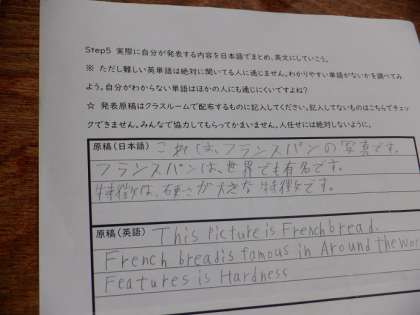 Step5 実際に自分が発表する内容を日本語でまとめ、英文にしていこう。
※ ただし難しい英単語は絶対に聞いてる人に通じません。わかりやすい単語がないかを調べてみ
よう。自分がわからない単語はほかの人にも通じにくいですよね?
☆ 発表原稿はクラスルームで配布するものに記入してください。記入してないものはこちらでチェッ
クできません。みんなで協力してもらってかまいません。人任せには絶対しないように。
原稿(日本語) これは、フランスパンの写真です。
フランスパンは、世界でも有名です。
特徴は、硬さが大きな特徴です。
原稿(英語) This picture is French bread.
French bread is famous in Around the wor
Features is Hardness